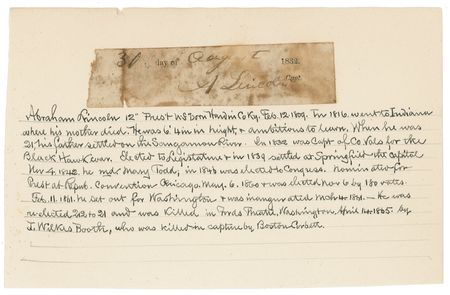 30 day of Augt 1832.
A Lincoln Capt.
Abraham Lincoln 12" Prest US Born Hardin Co Ky, Feb. 12.1809. In 1816. went to Indiana
where his mother died. He was 6' 4 in in height, & ambitious to learn. When he was
21, his father settled on the Sangamon River. In 1832 was Capt of Co Vols for the
Black Hawk war. Elected to Legislature & in 1839 settled at Springfield the capital
Nov 4. 1842. he md Mary Todd, in 1846 was elected to Congress. Nominated for
Prest at Repub. Convention Chicago, May. 6. 1860 & was elected Nov 6 by 180 votes.
Feb. 11. 1861. he set out for Washington & was inaugurated Mch 4. 1861. — He was
re-elected 212 to 21 and was killed in Fords Theatre, Washington April 14. 1865. by
J. Wilkes Booth, who was killed in capture by Boston Corbett.